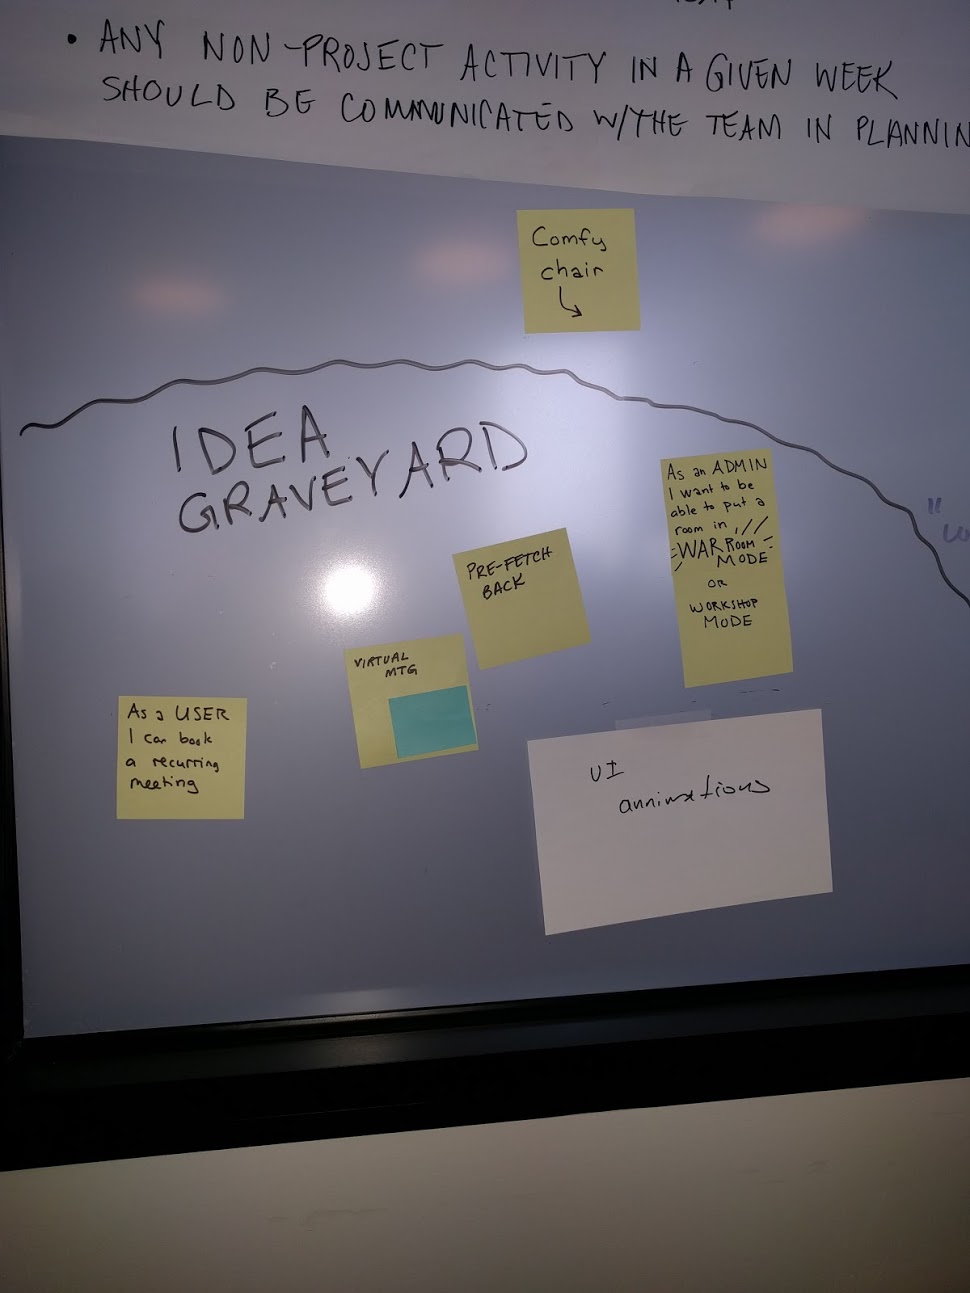 • ANY NON-PROJECT ACTIVITY IN A GIVEN WEEK
SHOULD BE COMMUNICATED W/THE TEAM IN PLANNIN
Comfy
chair
IDEA
GRAVEYARD
As an ADMIN
I want to be
able to put a
room in
WAR ROOM
MODE
OR
WORKSHOP
MODE
PRE-FETCH
BACK
VIRTUAL
MTG
As a USER
I can book
a recurring
meeting
UI
annimations